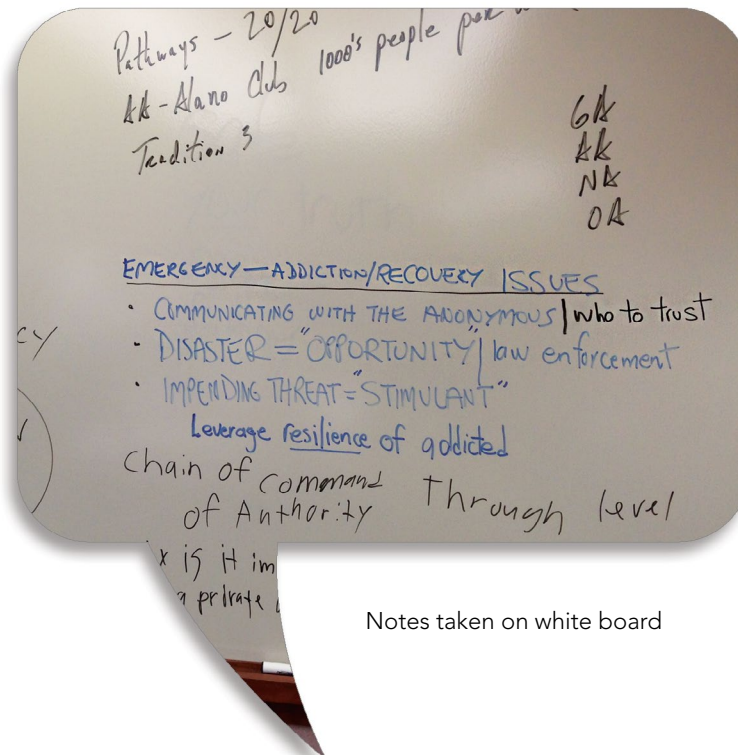 Pathways - 20/20
AA - Alano Club 1000's people per
Tradition 3
GA
AA
NA
OA
EMERGENCY — ADDICTION/RECOVERY ISSUES
· COMMUNICATING WITH THE ANONYMOUS | who to trust
· DISASTER = "OPPORTUNITY" | law enforcement
· IMPENDING THREAT = "STIMULANT"
Leverage resilience of addicted
CY
Chain of command Through level
of Authority
x is it im
a private
Notes taken on white board